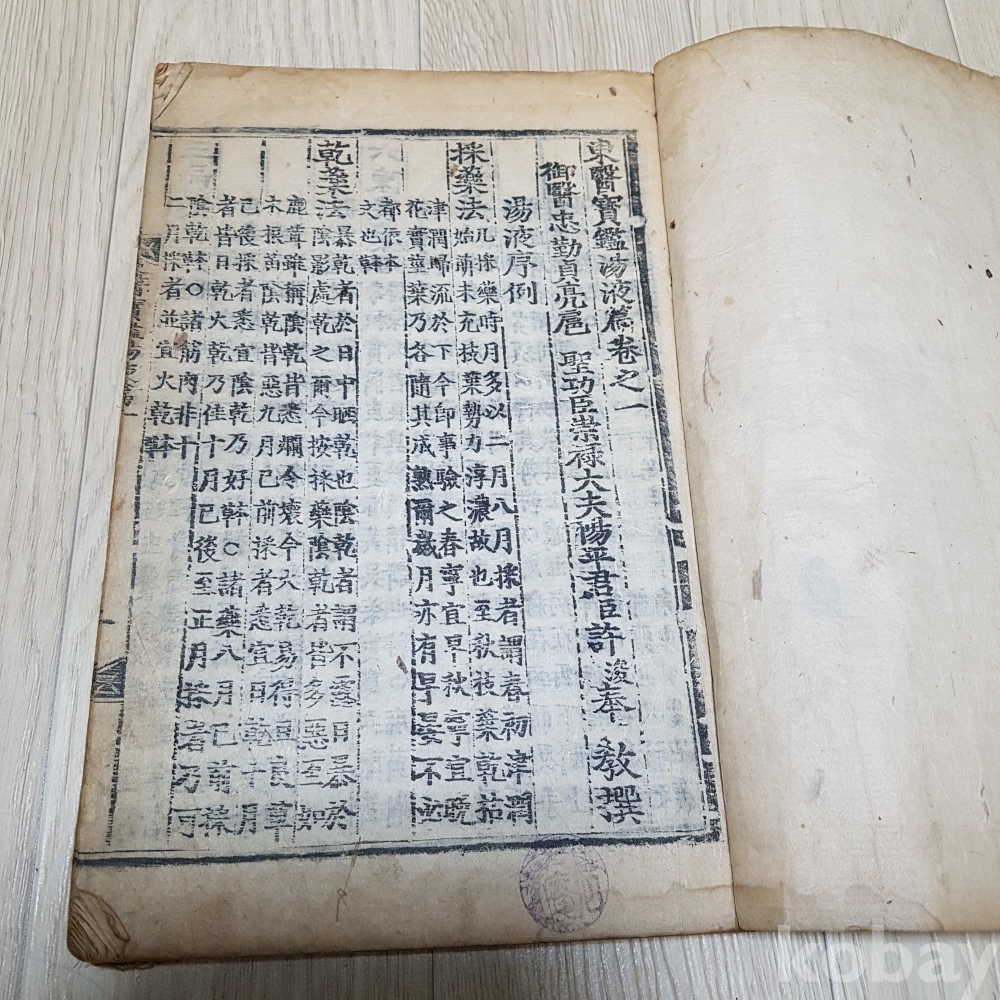 東醫寶鑑湯液篇卷之一
御醫忠勤貞亮扈 聖功臣崇祿大夫陽平君臣許 浚奉 敎撰
湯液序例
採藥法 凡採藥時月多以二月八月採者謂春初津潤
始萌未充枝葉勢力淳濃故也至秋枝葉乾枯
津潤歸流於下今卽事驗之春寧宜早秋寧宜晚
花實莖葉乃各隨其成熟爾歲月亦有早晏不必
都依本
文也本草
乾藥法 暴乾者於日中晒乾也陰乾者謂不露日暴於
陰影處乾之爾今按採藥陰乾者皆多惡至如
鹿茸雖稱陰乾皆悉爛令壞今火乾易得且良草
木根苗陰乾皆惡九月已前採者悉宜日乾十月
已後採者悉宜陰乾乃好本草○諸藥八月已前採
者皆日乾火乾乃佳十月已後至正月採者乃可
陰乾本草○諸筋肉非十
二月採者並宜火乾本草
kobay